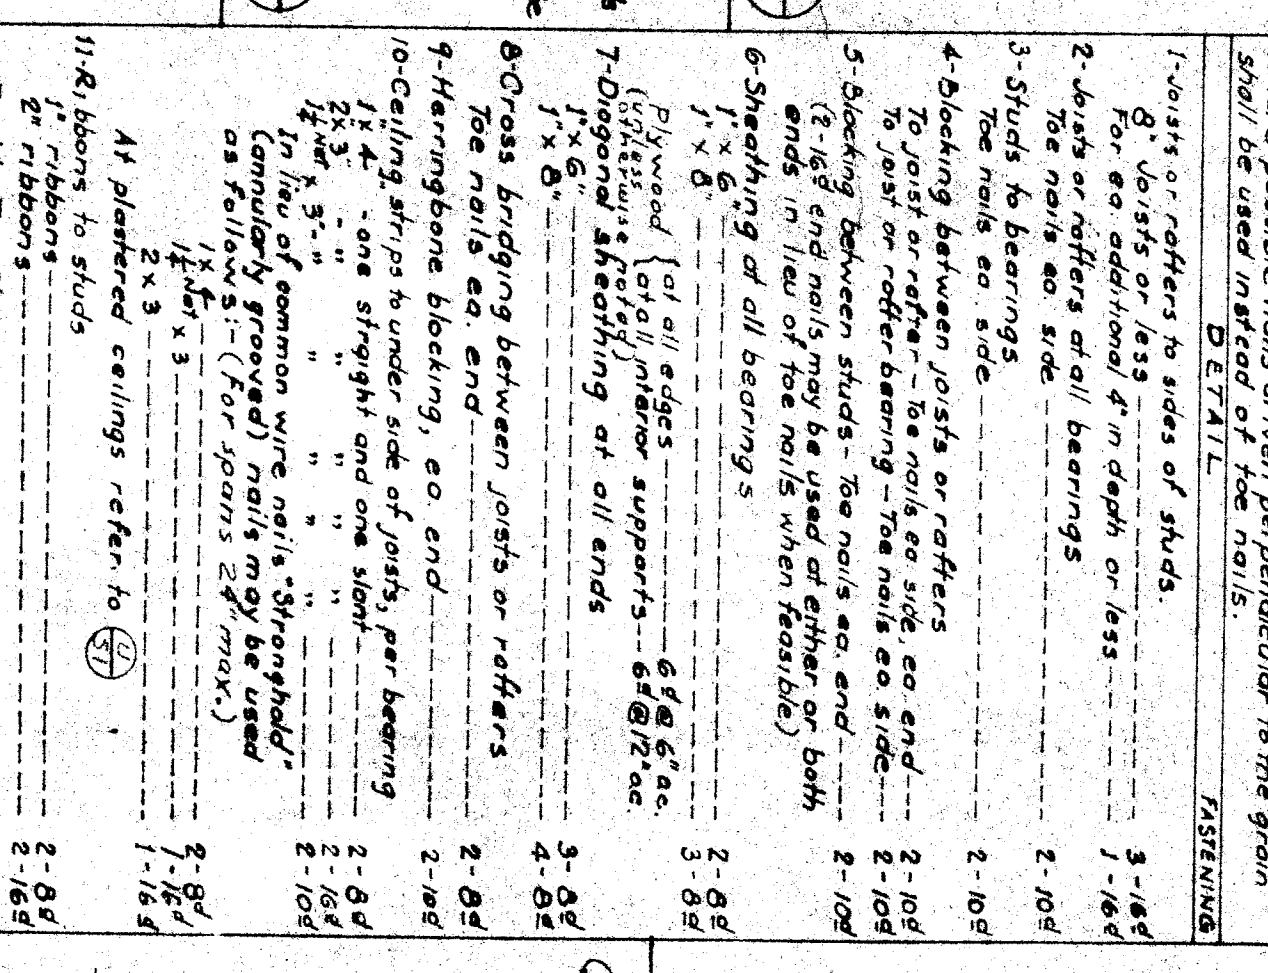 shall be used instead of toe nails.
DETAIL FASTENING
1-Joists or rafters to sides of studs.
8" Joists or less 3-16d
For ea. additional 4" in depth or less 1-16d
2-Joists or rafters at all bearings
Toe nails ea. side 2-10d
3-Studs to bearings
Toe nails ea. side 2-10d
4-Blocking between joists or rafters
To joist or rafter - Toe nails ea side, ea end 2-10d
To joist or rafter bearing - Toe nails ea side 2-10d
5-Blocking between studs - Toe nails ea. end 2-10d
(2-16d end nails may be used at either or both
ends in lieu of toe nails when feasible)
6-Sheathing at all bearings
1" x 6" 2-8d
1" x 8" 3-8d
Plywood { at all edges 6d @ 6" oc.
(unless otherwise noted) { at all interior supports 6d @ 12" oc.
7-Diagonal sheathing at all ends
1" x 6" 3-8d
1" x 8" 4-8d
8-Cross bridging between joists or rafters
Toe nails ea. end 2-8d
9-Herringbone blocking, ea. end 2-10d
10-Ceiling strips to under side of joists, per bearing
1" x 4" - one straight and one slant 2-8d
2" x 3" - " " " " " 2-16d
1¼ Net x 3" - " " " " " 2-10d
In lieu of common wire nails "Stronghold"
(annularly grooved) nails may be used
as follows:- (for spans 24" max.)
1 x 4 2-8d
1¼ Net x 3 1-16d
2 x 3 1-16d
At plastered ceilings refer to U/51.
11-Ribbons to studs
1" ribbons 2-8d
2" ribbons 2-16d